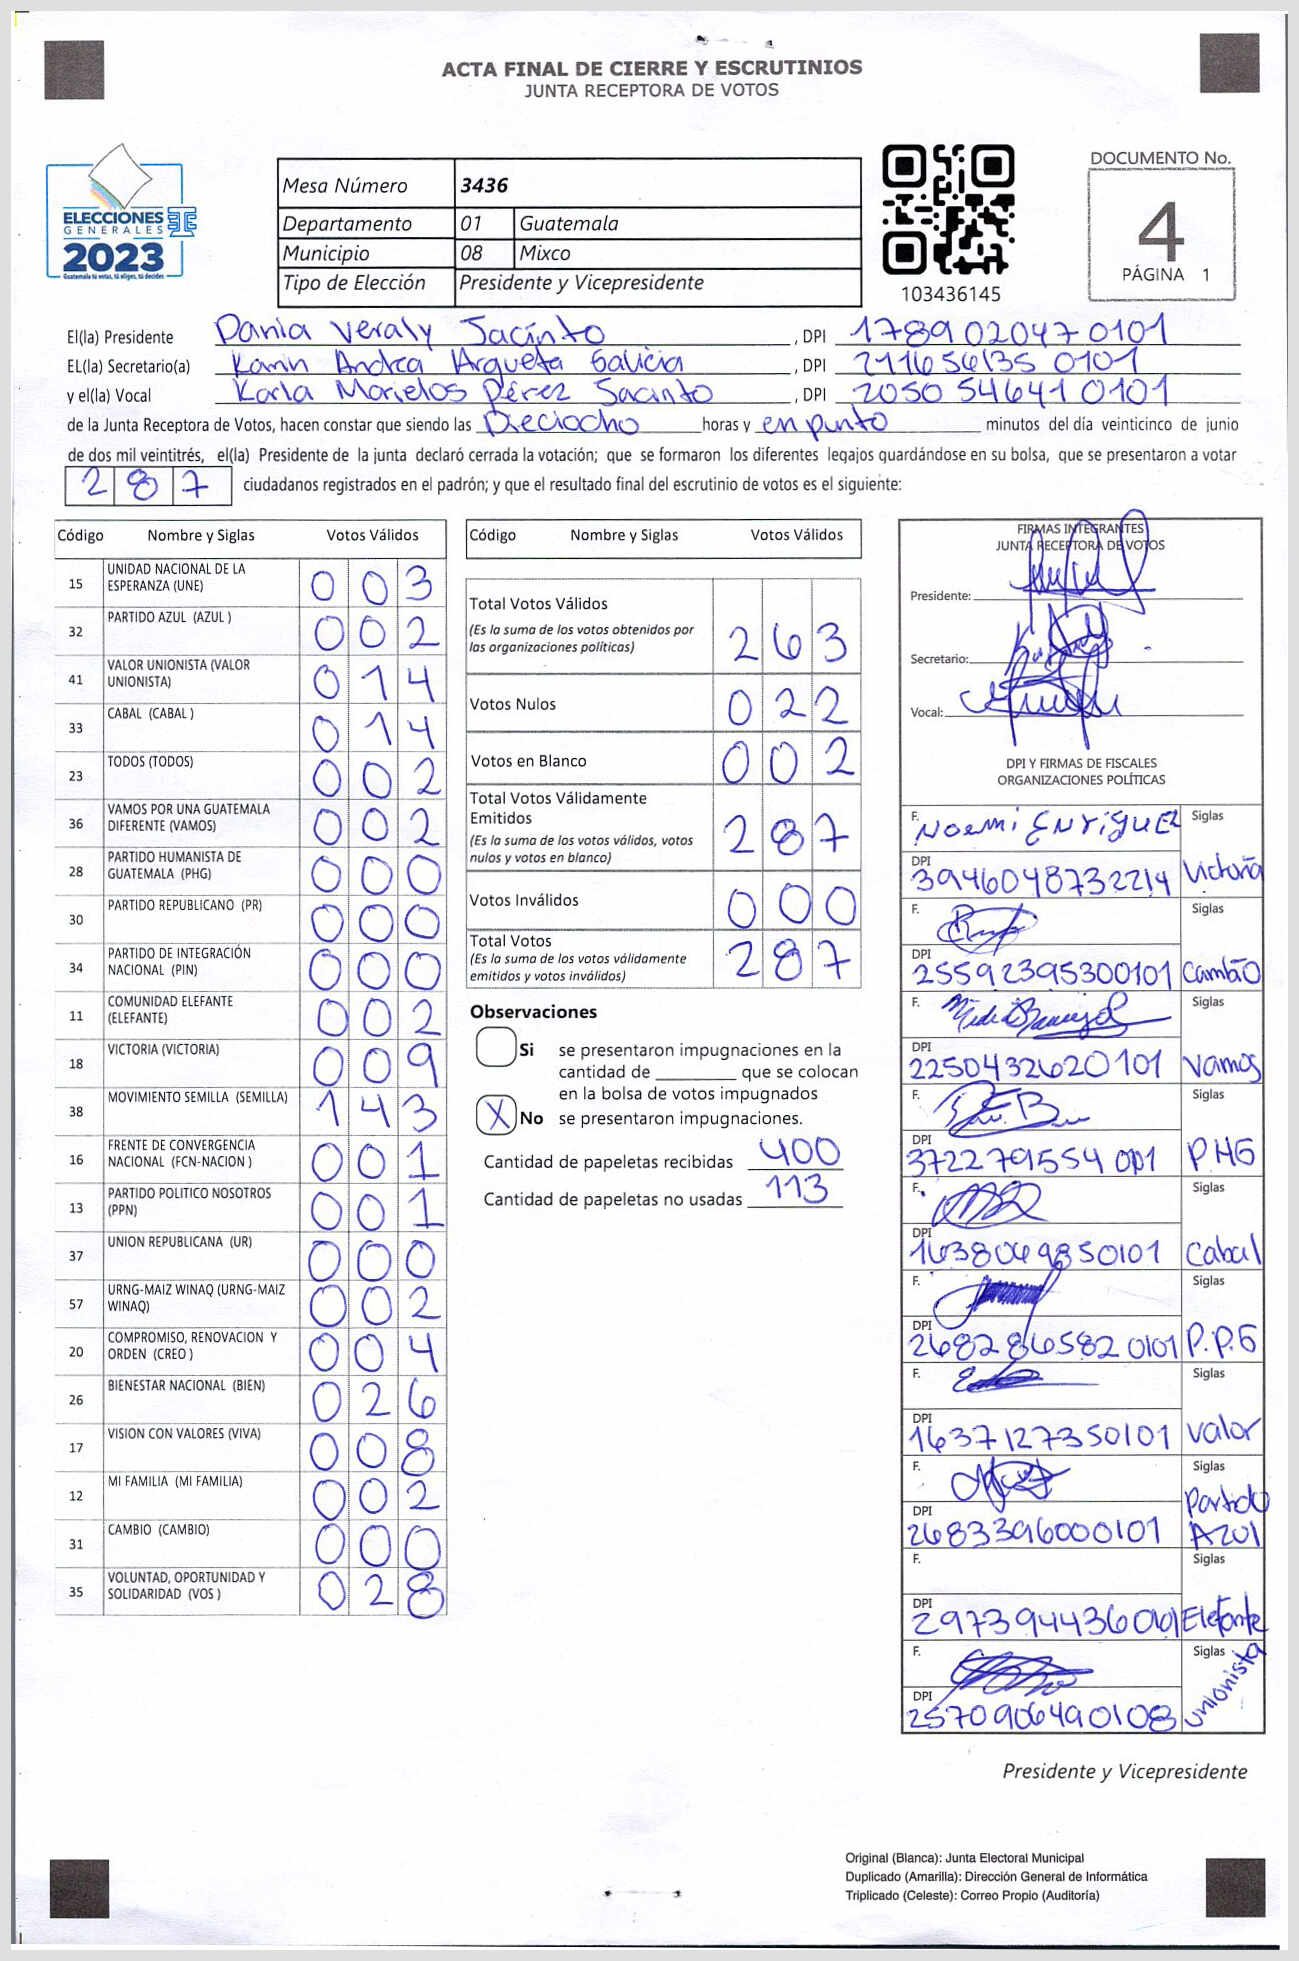 ACTA FINAL DE CIERRE Y ESCRUTINIOS
JUNTA RECEPTORA DE VOTOS
ELECCIONES
GENERALES
2023
Guatemala tú votas, tú eliges, tú decides
Mesa Número 3436
Departamento 01 Guatemala
Municipio 08 Mixco
Tipo de Elección Presidente y Vicepresidente
103436145
DOCUMENTO No.
4
PÁGINA 1
El(la) Presidente Dania Veraly Jacinto, DPI 1789 02047 0101
EL(la) Secretario(a) Karin Andrea Argueta Galicia, DPI 211656135 0101
y el(la) Vocal Karla Marielos Pérez Jacinto, DPI 2050 54641 0101
de la Junta Receptora de Votos, hacen constar que siendo las Dieciocho horas y en punto minutos del día veinticinco de junio
de dos mil veintitrés, el(la) Presidente de la junta declaró cerrada la votación; que se formaron los diferentes legajos guardándose en su bolsa, que se presentaron a votar
287 ciudadanos registrados en el padrón; y que el resultado final del escrutinio de votos es el siguiente:
Código Nombre y Siglas Votos Válidos
15 UNIDAD NACIONAL DE LA ESPERANZA (UNE) 003
32 PARTIDO AZUL (AZUL ) 002
41 VALOR UNIONISTA (VALOR UNIONISTA) 014
33 CABAL (CABAL ) 014
23 TODOS (TODOS) 002
36 VAMOS POR UNA GUATEMALA DIFERENTE (VAMOS) 002
28 PARTIDO HUMANISTA DE GUATEMALA (PHG) 000
30 PARTIDO REPUBLICANO (PR) 000
34 PARTIDO DE INTEGRACIÓN NACIONAL (PIN) 000
11 COMUNIDAD ELEFANTE (ELEFANTE) 002
18 VICTORIA (VICTORIA) 009
38 MOVIMIENTO SEMILLA (SEMILLA) 143
16 FRENTE DE CONVERGENCIA NACIONAL (FCN-NACION ) 001
13 PARTIDO POLITICO NOSOTROS (PPN) 001
37 UNION REPUBLICANA (UR) 000
57 URNG-MAIZ WINAQ (URNG-MAIZ WINAQ) 002
20 COMPROMISO, RENOVACION Y ORDEN (CREO ) 004
26 BIENESTAR NACIONAL (BIEN) 026
17 VISION CON VALORES (VIVA) 008
12 MI FAMILIA (MI FAMILIA) 002
31 CAMBIO (CAMBIO) 000
35 VOLUNTAD, OPORTUNIDAD Y SOLIDARIDAD (VOS ) 028
Código Nombre y Siglas Votos Válidos
Total Votos Válidos 263
(Es la suma de los votos obtenidos por las organizaciones políticas)
Votos Nulos 022
Votos en Blanco 002
Total Votos Válidamente Emitidos 287
(Es la suma de los votos válidos, votos nulos y votos en blanco)
Votos Inválidos 000
Total Votos 287
(Es la suma de los votos válidamente emitidos y votos inválidos)
Observaciones
Si se presentaron impugnaciones en la
cantidad de ________ que se colocan
en la bolsa de votos impugnados
X No se presentaron impugnaciones.
Cantidad de papeletas recibidas 400
Cantidad de papeletas no usadas 113
FIRMAS INTEGRANTES
JUNTA RECEPTORA DE VOTOS
Presidente:
Secretario:
Vocal:
DPI Y FIRMAS DE FISCALES
ORGANIZACIONES POLÍTICAS
F. Noemi Enriquez Siglas
DPI 3946048732214 Victoria
F. Siglas
DPI 2559239530101 Cambio
F. Siglas
DPI 2250432620101 Vamos
F. Siglas
DPI 372279554 0101 P.HG
F. Siglas
DPI 1638049850101 Cabal
F. Siglas
DPI 268286582 0101 P.P.G
F. Siglas
DPI 1637127350101 Valor
F. Siglas
DPI 2683396000101 Partido Azul
F. Siglas
DPI Elefante
F. Siglas
DPI 2570906490108 Unionista
Presidente y Vicepresidente
Original (Blanca): Junta Electoral Municipal
Duplicado (Amarilla): Dirección General de Informática
Triplicado (Celeste): Correo Propio (Auditoría)